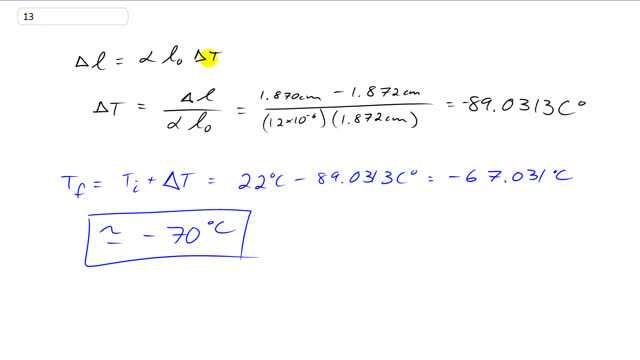 13
Δl = α l₀ ΔT
ΔT = Δl / α l₀ = 1.870cm − 1.872cm / (12×10⁻⁶)(1.872cm) = −89.0313C°
T_f = T_i + ΔT = 22°C − 89.0313C° = −67.031°C
≃ −70°C